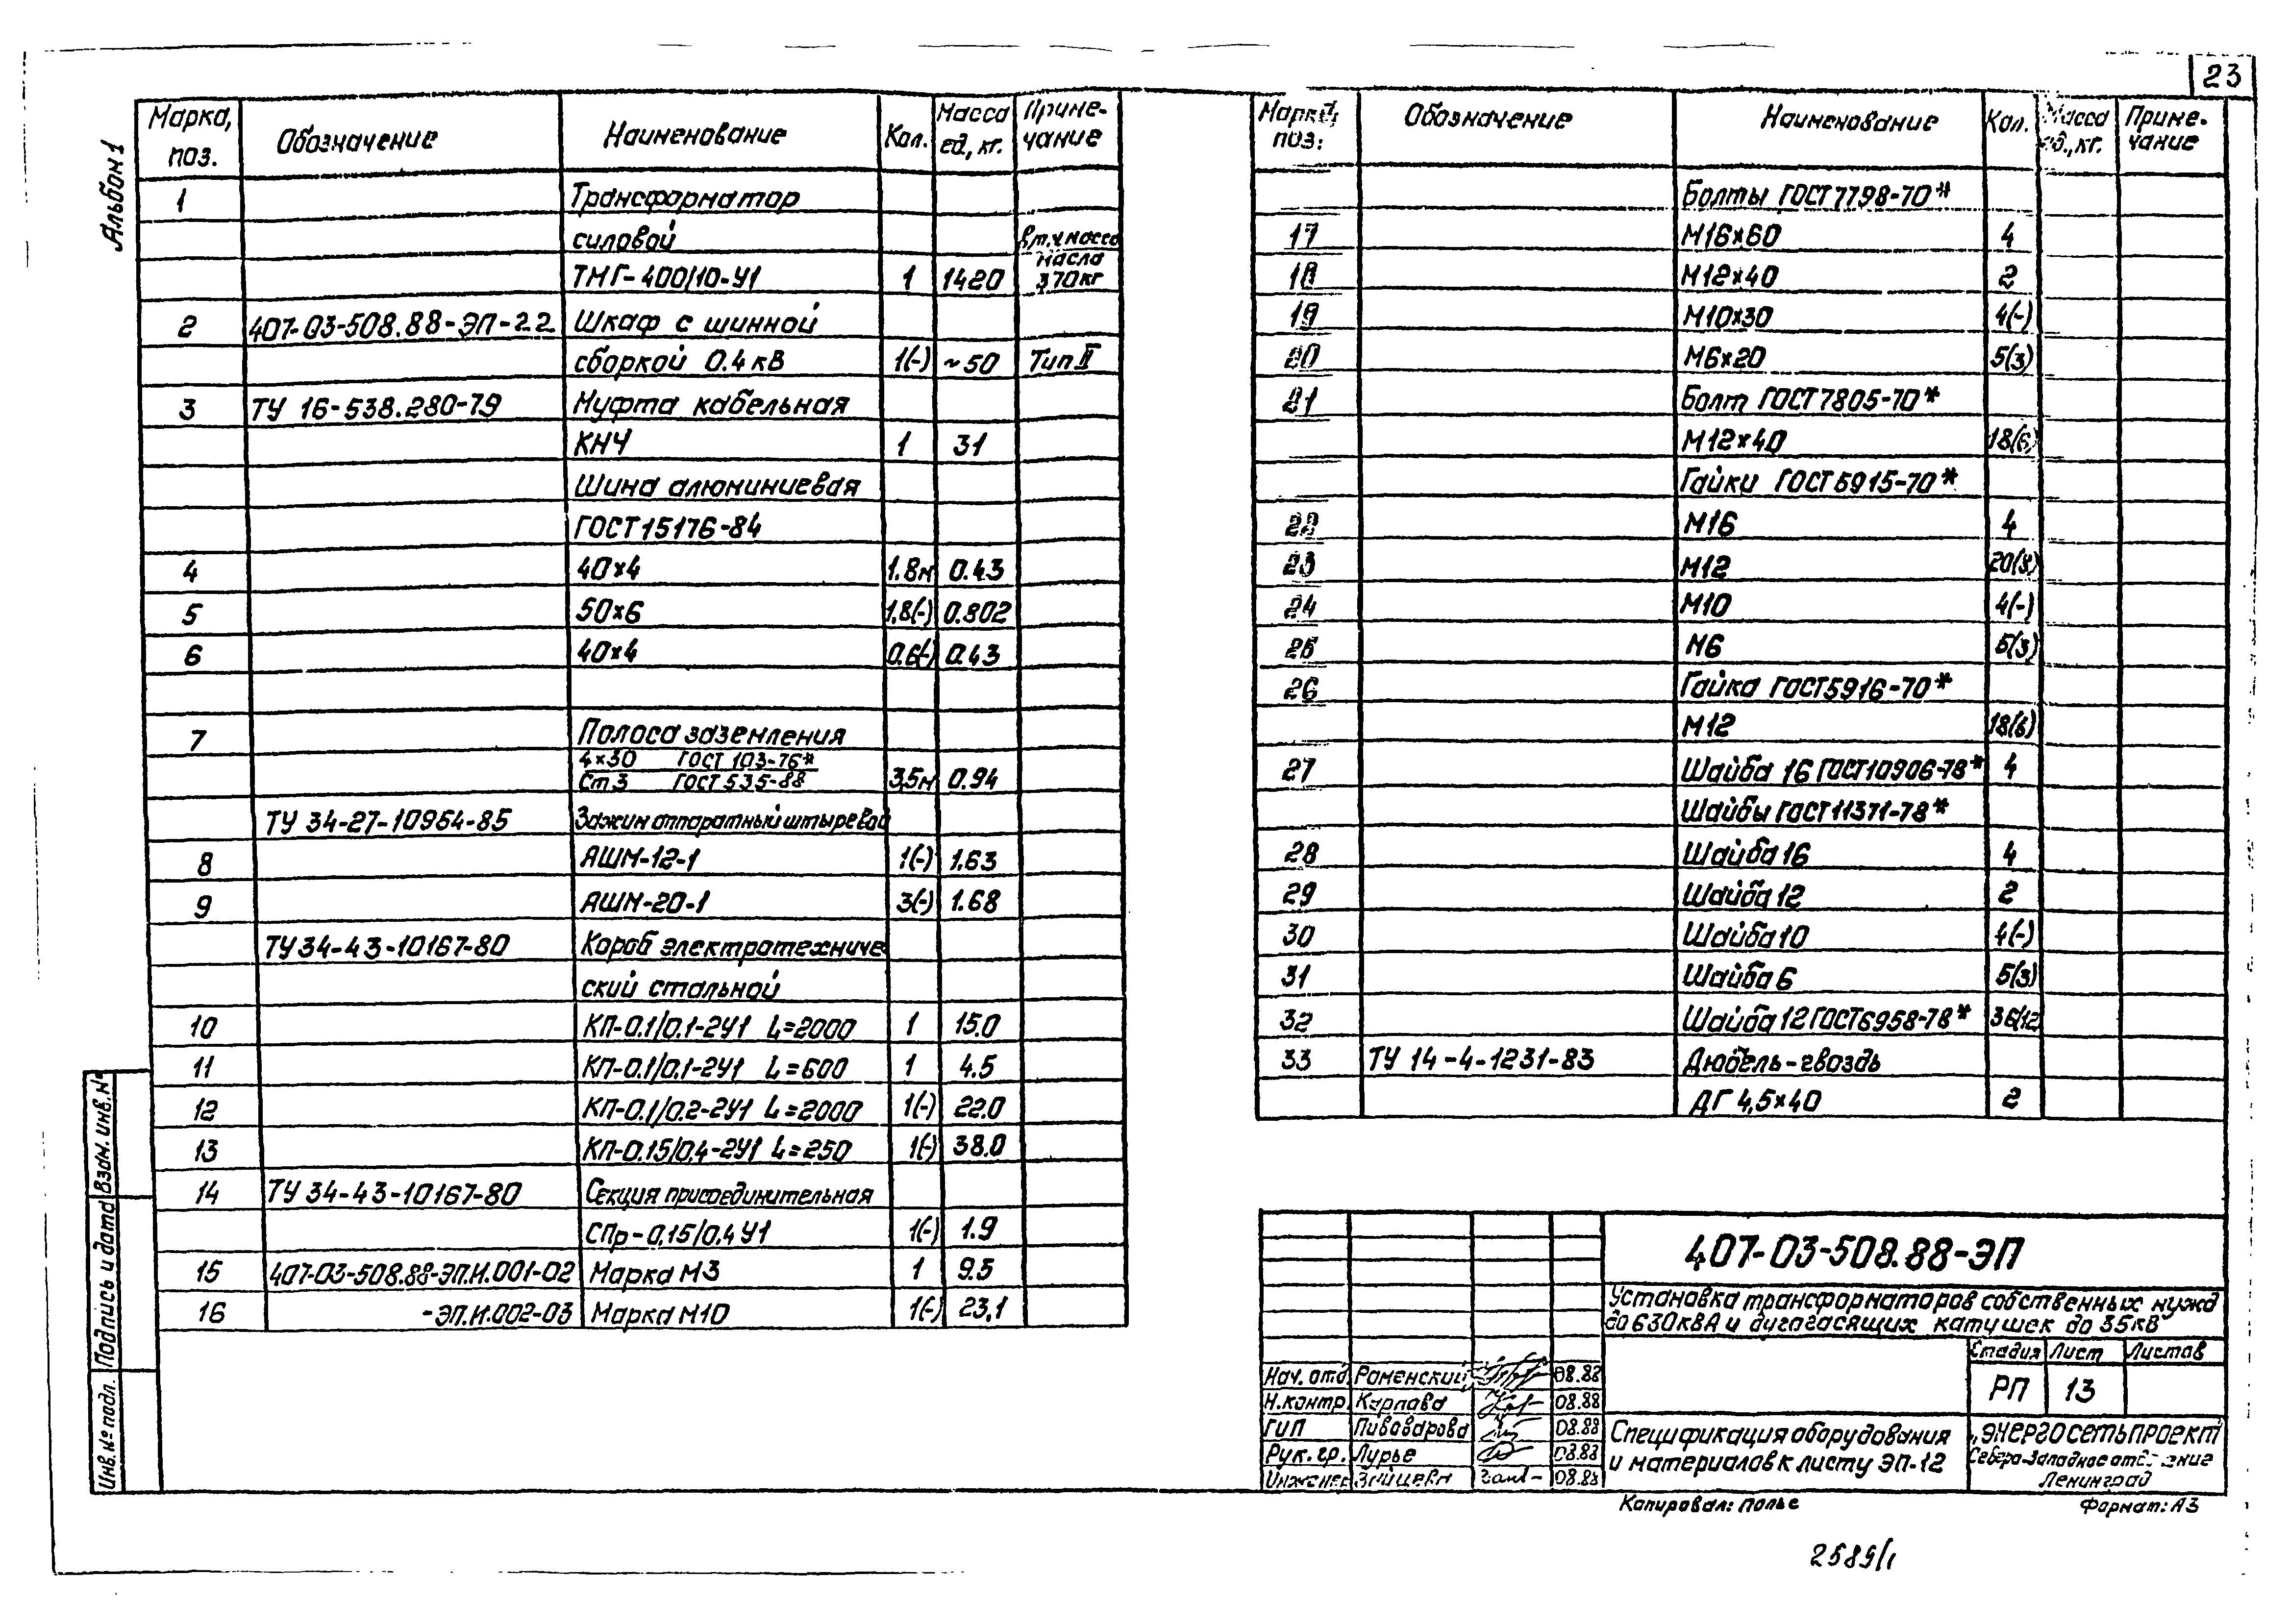 23
Альбом 1
Марка, поз. Обозначение Наименование Кол. Масса ед, кг. Приме-чание
1 Трансформатор
силовой в т.ч масса
ТМГ-400/10-У1 1 1420 масла 370кг
2 407-03-508.88-ЭП-22 Шкаф с шинной
сборкой 0.4 кВ 1(-) ~50 Тип II
3 ТУ 16-538.280-79 Муфта кабельная
КНЧ 1 31
Шина алюминиевая
ГОСТ 15176-84
4 40×4 1.8м 0.43
5 50×6 1,8(-) 0.802
6 40×4 0.6(-) 0.43
7 Полоса заземления
4×30 ГОСТ 103-76*
Ст3 ГОСТ 535-88 3,5м 0.94
ТУ 34-27-10964-85 Зажим аппаратный штыревой
8 АШМ-12-1 1(-) 1.63
9 АШМ-20-1 3(-) 1.68
ТУ 34-43-10167-80 Короб электротехниче
ский стальной
10 КП-0.1/0.1-2У1 L=2000 1 15.0
11 КП-0.1/0.1-2У1 L=600 1 4.5
12 КП-0.1/0.2-2У1 L=2000 1(-) 22.0
13 КП-0.15/0,4-2У1 L=250 1(-) 38.0
14 ТУ 34-43-10167-80 Секция присоединительная
СПр-0,15/0,4У1 1(-) 1.9
15 407-03-508.88-ЭП.И.001-02 Марка М3 1 9.5
16 -ЭП.И.002-03 Марка М10 1(-) 23,1
Марка, поз. Обозначение Наименование Кол. Масса ед., кг. Приме-чание
Болты ГОСТ 7798-70*
17 М16×60 4
18 М12×40 2
19 М10×30 4(-)
20 М6×20 5(3)
21 Болт ГОСТ 7805-70*
М12×40 18(6)
Гайки ГОСТ 5915-70*
22 М16 4
23 М12 20(8)
24 М10 4(-)
25 М6 5(3)
26 Гайка ГОСТ 5916-70*
М12 18(6)
27 Шайба 16 ГОСТ 10906-78* 4
Шайбы ГОСТ 11371-78*
28 Шайба 16 4
29 Шайба 12 2
30 Шайба 10 4(-)
31 Шайба 6 5(3)
32 Шайба 12 ГОСТ 6958-78* 36(12
33 ТУ 14-4-1231-83 Дюбель-гвоздь
ДГ 4,5×40 2
Взам. инв. №
Подпись и дата
Инв. № подл.
407-03-508.88-ЭП
Установка трансформаторов собственных нужд
до 630кВА и дугогасящих катушек до 35кВ
Стадия Лист Листов
РП 13
Нач. отд. Роменский 08.88
Н.контр. Карпова 08.88
ГИП Пивоварова 08.88
Рук. гр. Лурье 08.88
Инженер Зайцева 08.88
Спецификация оборудования
и материалов к листу ЭП-12
"Энергосетьпроект
Северо-Западное отделение
Ленинград
Копировал: Полье Формат: А3
2589/1